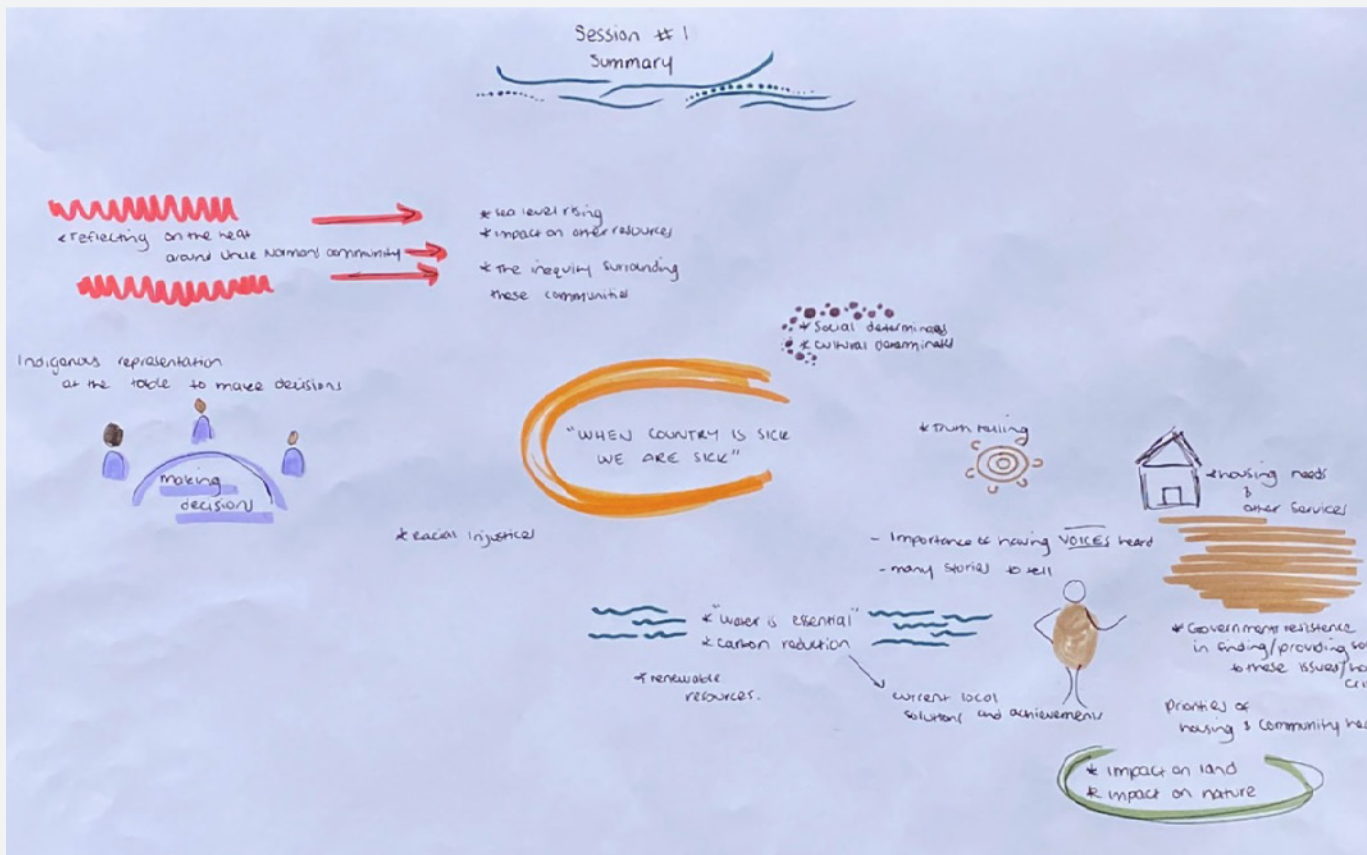 Session # 1
Summary
* reflecting on the heat
around Uncle Norman's community
* sea level rising
* impact on other resources
* The inequity surrounding
these communities
* Social determinates
* cultural determinates
Indigenous representation
at the table to make decisions
making
decisions
"WHEN COUNTRY IS SICK
WE ARE SICK"
* Truth telling
* housing needs
&
other services
* racial injustices
- Importance of having VOICES heard
- many stories to tell
* "water is essential"
* carbon reduction
* renewable
resources.
current local
solutions and achievements
* Government resistence
in finding/providing
to these issues/
priorities of
housing & community
* impact on land
* impact on nature